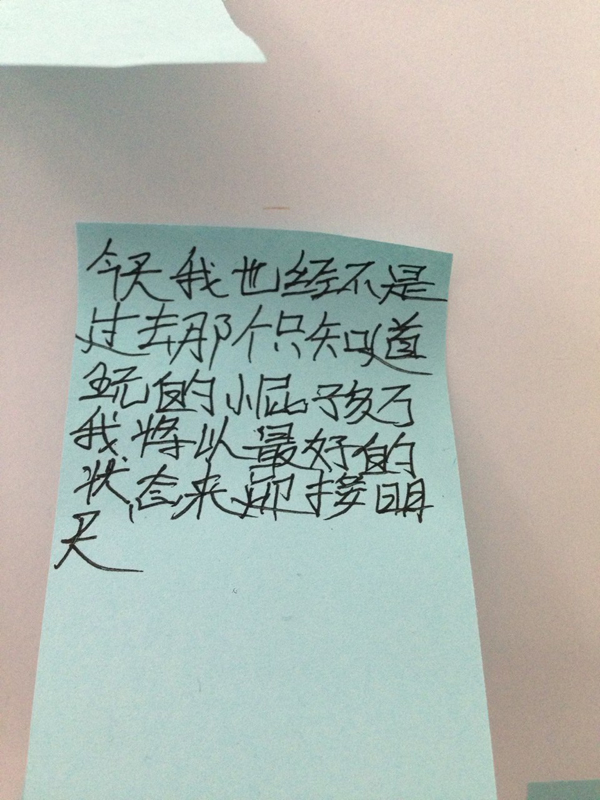 今天我也经不是
过去那个只知道
玩的小屁孩了
我将以最好的
状态来迎接明
天